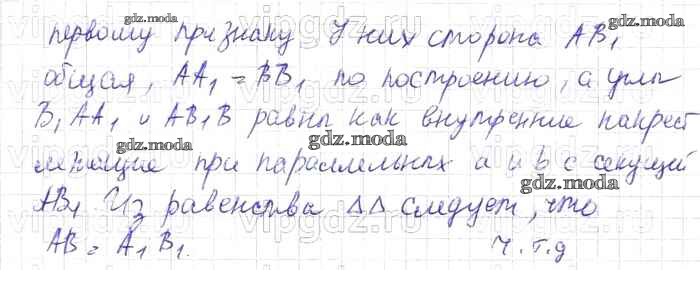 первому признаку У них сторона AB₁
общая, AA₁ = BB₁ по построению, а углы
B₁AA₁ и AB₁B равны как внутренние накрест
лежащие при параллельных a и b с секущей
AB₁ Из равенства ΔΔ следует, что
AB = A₁B₁. ч.т.д
gdz.moda
gdz.moda
gdz.moda
gdz.moda
gdz.moda
gdz.moda
gdz.moda
gdz.moda
vipgdz.ru